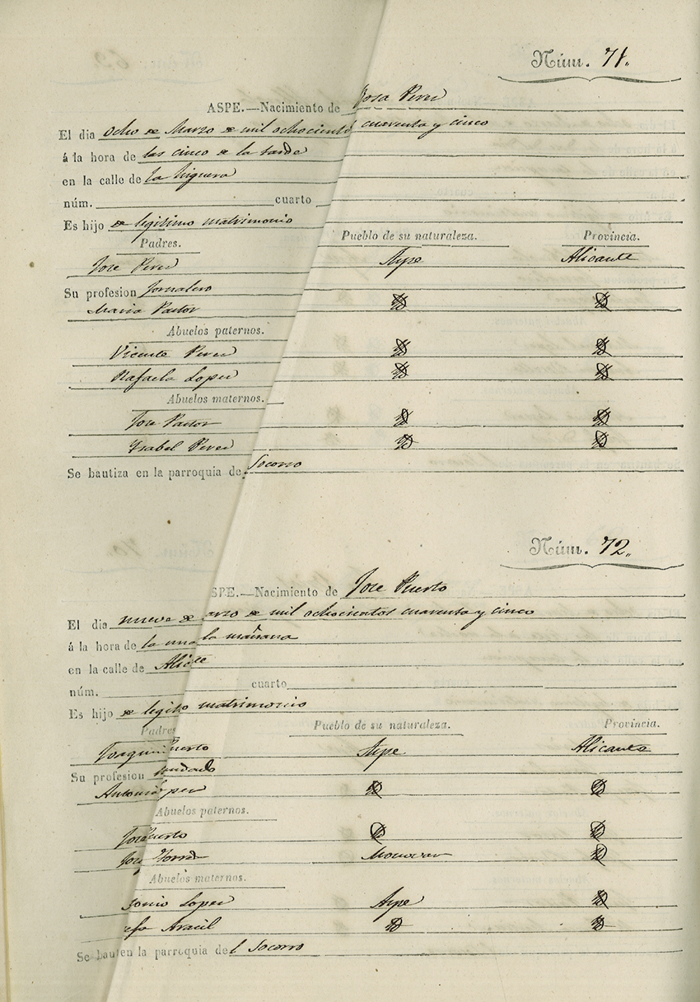 Núm. 71.
ASPE.—Nacimiento de Jose Perez
El dia ocho de Marzo de mil ochociento cuarenta y cinco
á la hora de las cinco de la tarde
en la calle de la Higuera
núm. cuarto
Es hijo de legitimo matrimonio
Padres. Pueblo de su naturaleza. Provincia.
Jose Perez Aspe Alicante
Su profesion Jornalero
Maria Pastor
Abuelos paternos.
Vicente Perez
Rafaela Lopez
Abuelos maternos.
Jose Pastor
Ysabel Perez
Se bautiza en la parroquia de Socorro
Núm. 72.
SPE.—Nacimiento de Jose Puerto
El dia nueve de arzo de mil ochocientos cuarenta y cinco
á la hora de la una la mañana
en la calle de
núm. cuarto
Es hijo de legito matrimonio
Padres Pueblo de su naturaleza. Provincia.
Joaquin uerto Aspe Alicante
Su profesion
Antonia pez
Abuelos paternos.
Jose uerto
Monovar
Abuelos maternos.
tonio Lopez Aspe
efa Aracil
Se bau en la parroquia de l Socorro